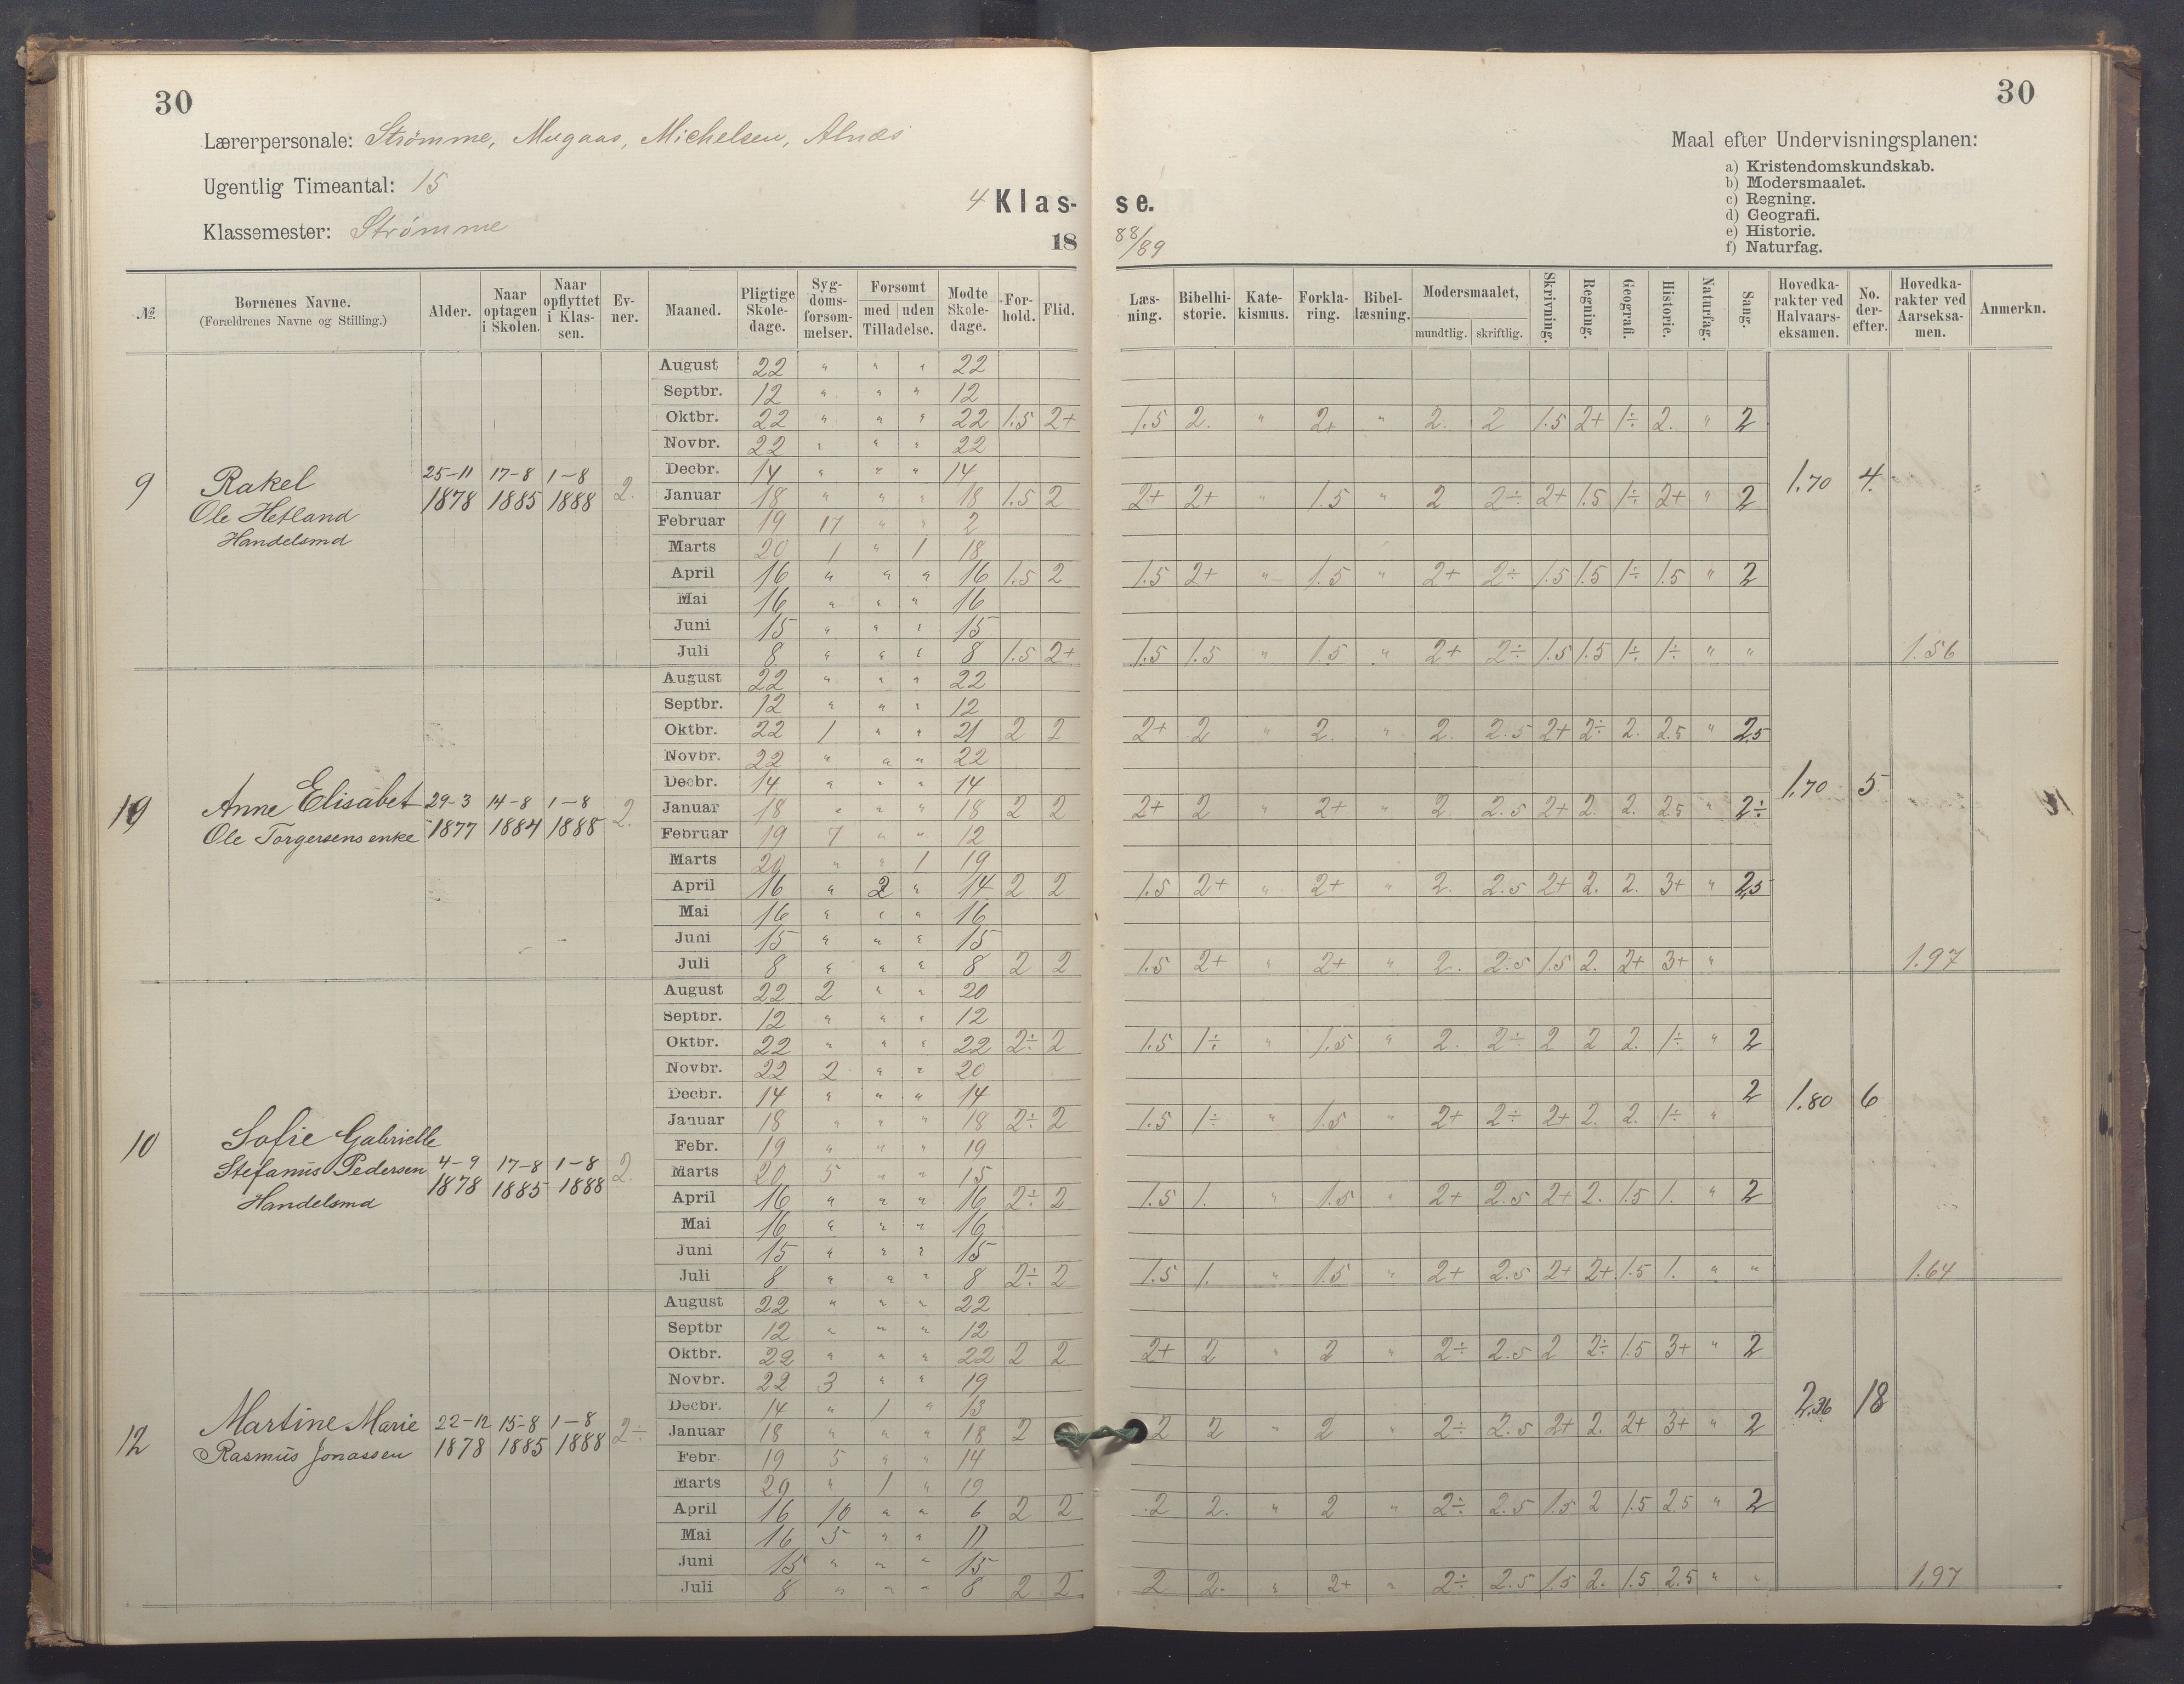 30
30
Lærerpersonale: Strømme, Mugaas, Michelsen, Alnæs
Ugentlig Timeantal: 15
Klassemester: Strømme
4 Klas- se.
18 88/89
Maal efter Undervisningsplanen:
a) Kristendomskundskab.
b) Modersmaalet.
c) Regning.
d) Geografi.
e) Historie.
f) Naturfag.
№ Bornenes Navne. (Forældrenes Navne og Stilling.) Alder. Naar optagen i Skolen. Naar opflyttet i Klas-sen. Ev-ner. Maaned. Pligtige Skole-dage. Syg-doms-forsom-melser. Forsomt med uden Tilladelse. Mødte Skole-dage. For-hold. Flid. Læs-ning. Bibelhi-storie. Kate-kismus. Forkla-ring. Bibel-læsning. Modersmaalet, mundtlig. skriftlig. Skrivning. Regning. Geografi. Historie. Naturfag. Sang. Hovedka-rakter ved Halvaars-eksamen. No. der-efter. Hovedka-rakter ved Aarseksa-men. Anmerkn.
9 Rakel
Ole Hetland
Handelsmd
25-11 1878 17-8 1885 1-8 1888 2. 1.70 4.
August 22 " " " 22
Septbr. 12 " " " 12
Oktbr. 22 " " " 22 1.5 2+ 1.5 2. " 2+ " 2. 2 1.5 2+ 1÷ 2. " 2
Novbr. 22 " " " 22
Decbr. 14 " " " 14
Januar 18 " " " 18 1.5 2 2+ 2+ " 1.5 " 2 2÷ 2+ 1.5 1÷ 2+ " 2
Februar 19 17 " " 2
Marts 20 1 " 1 18
April 16 " " " 16 1.5 2 1.5 2+ " 1.5 " 2+ 2÷ 1.5 1.5 1÷ 1.5 " 2
Mai 16 " " " 16
Juni 15 " " " 15
Juli 8 " " " 8 1.5 2+ 1.5 1.5 " 1.5 " 2+ 2÷ 1.5 1.5 1÷ 1÷ " " 1.56
Anne Elisabet
Ole Torgersens enke
29-3 1877 14-8 1884 1-8 1888 2. 1.70 5
August 22 " " " 22
Septbr. 12 " " " 12
Oktbr. 22 1 " " 21 2 2 2+ 2 " 2. " 2. 2.5 2+ 2÷ 2. 2.5 " 2.5
Novbr. 22 " " " 22
Decbr. 14 " " " 14
Januar 18 " " " 18 2 2 2+ 2 " 2+ " 2 2.5 2+ 2. 2. 2.5 " 2÷
Februar 19 7 " " 12
Marts 20 " " 1 19
April 16 " 2 " 14 2 2 1.5 2+ " 2+ " 2. 2.5 2+ 2. 2. 3+ " 2.5
Mai 16 " " " 16
Juni 15 " " " 15
Juli 8 " " " 8 2 2 1.5 2+ " 2+ " 2. 2.5 1.5 2. 2+ 3+ " 1.97
10 Sofie Gabrielle
Stefanus Pedersen
Handelsmd
4-9 1878 17-8 1885 1-8 1888 2. 1.80 6
August 22 2 " " 20
Septbr. 12 " " " 12
Oktbr. 22 " " " 22 2÷ 2 1.5 1÷ " 1.5 " 2. 2÷ 2 2 2. 1÷ " 2
Novbr. 22 2 " " 20
Decbr. 14 " " " 14 2
Januar 18 " " " 18 2÷ 2 1.5 1÷ " 1.5 " 2+ 2÷ 2+ 2. 2. 1÷ "
Febr. 19 " " " 19
Marts 20 5 " " 15
April 16 " " " 16 2÷ 2 1.5 1. " 1.5 " 2+ 2.5 2+ 2. 1.5 1. " 2
Mai 16 " " " 16
Juni 15 " " " 15
Juli 8 " " " 8 2÷ 2 1.5 1. " 1.5 " 2+ 2.5 2+ 2+ 1.5 1. " " 1.64
12 Martine Marie
Rasmus Jonassen
22-12 1878 15-8 1885 1-8 1888 2÷ 2.36 18
August 22 " " " 22
Septbr 12 " " " 12
Oktbr. 22 " " " 22 2 2 2+ 2 " 2 " 2÷ 2.5 2 2÷ 1.5 3+ " 2
Novbr. 22 3 " " 19
Decbr. 14 " 1 " 13
Januar 18 " " " 18 2 2 2 " 2 " 2÷ 2.5 2+ 2. 2+ 3+ " 2
Febr 19 5 " " 14
Marts 20 " 1 " 19
April 16 10 " " 6 2 2 2 2. " 2 " 2÷ 2.5 1.5 2 1.5 2.5 " 2
Mai 16 5 " " 11
Juni 15 " " " 15
Juli 8 " " " 8 2 2 2 2. " 2+ " 2÷ 2.5 1.5 2. 1.5 2.5 " " 1.97